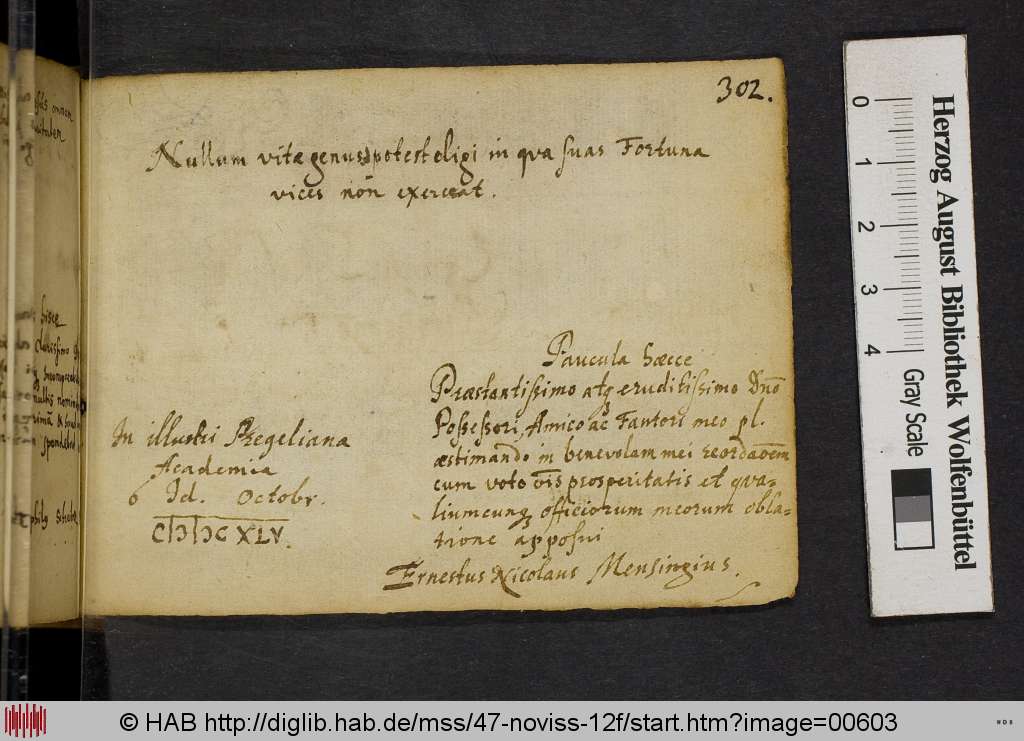 302.
Nullum vitæ genus potest eligi in qva suas Fortuna
vices non exerceat.
Paucula hæcce
Præstantissimo atq; eruditissimo Dn̄o
Possessori, Amico ac Fautori meo pl.
æstimando in benevolam mei recordaōem
cum voto ōis prosperitatis et qva-
liumcunq; officiorum meorum obla-
tione apposui
Ernestus Nicolaus Mensingius.
In illustri Pregeliana
Academia
6 Id. Octobr.
CIↃIↃC XLV.
Herzog August Bibliothek Wolfenbüttel
0 1 2 3 4 Gray Scale
© HAB http://diglib.hab.de/mss/47-noviss-12f/start.htm?image=00603